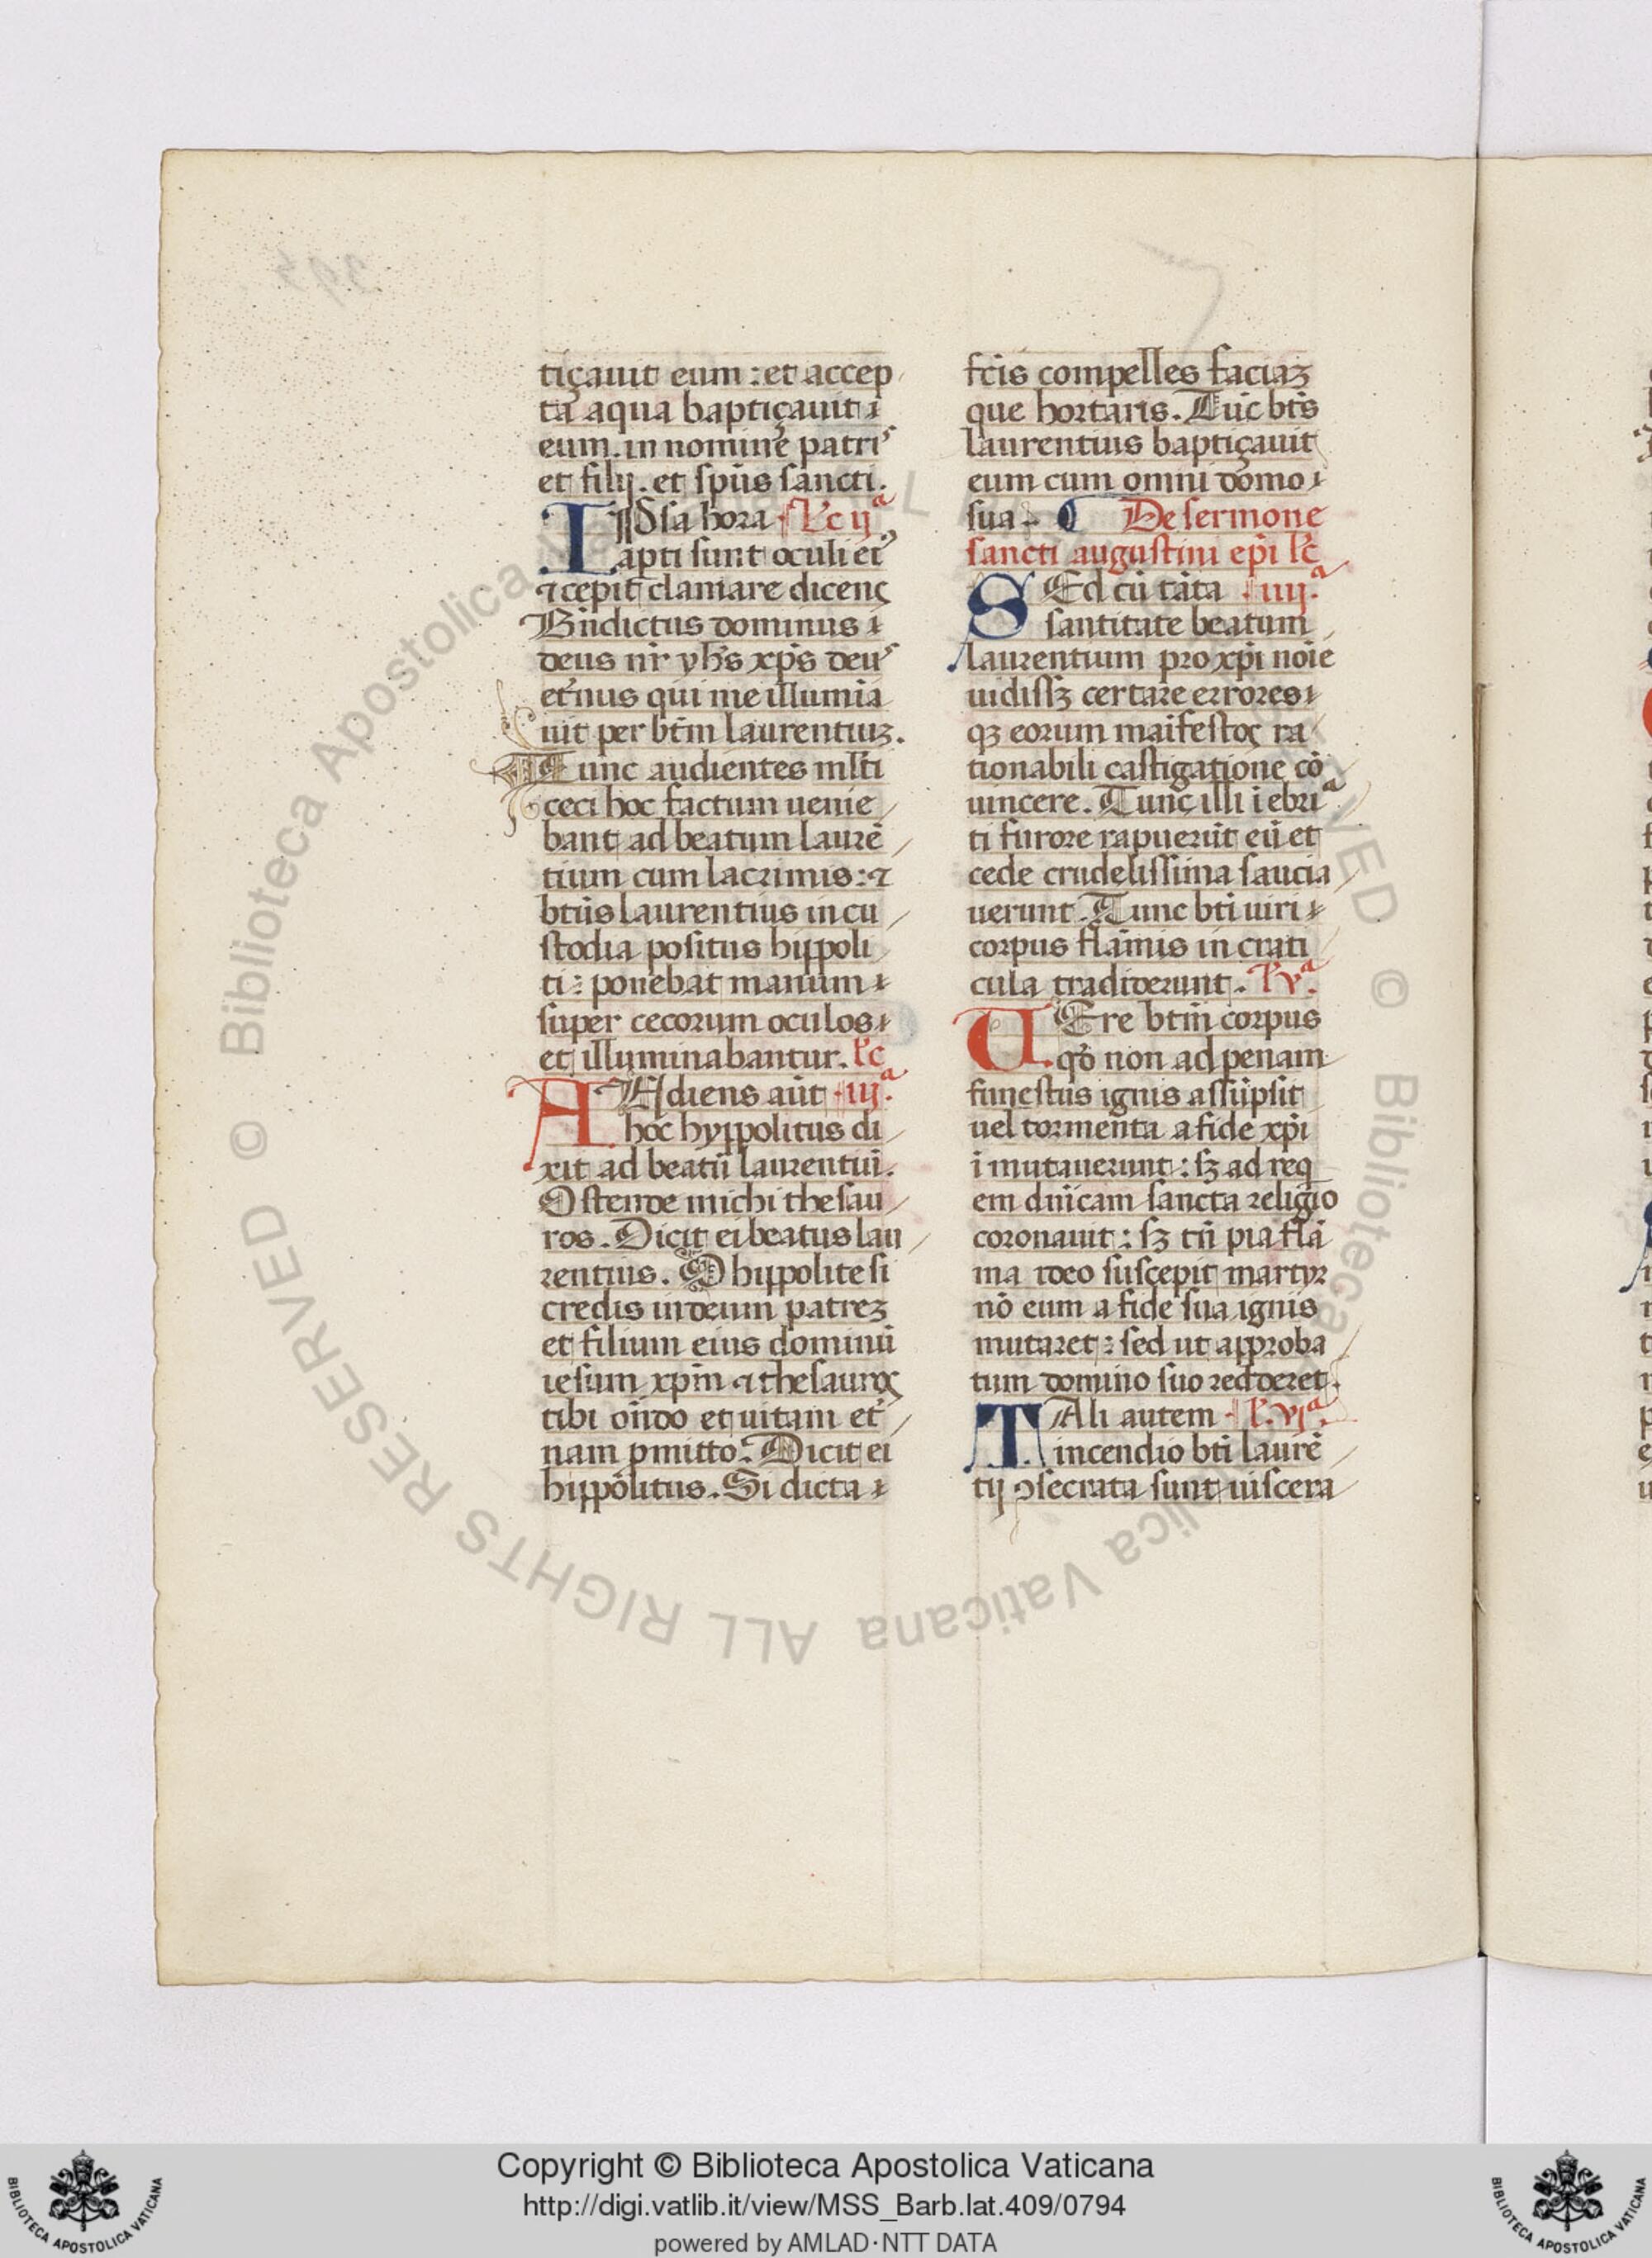 tiçauit eum : et accep
ta aqua baptiçauit
eum. in nomine patris
et filij. et sp̄us sancti.
IPsa hora lc̄ ijª
apti sunt oculi ei᾽
⁊ cepit clamare dicens
Bn̄dictus dominus
deus nr̄ yhs̄ xp̄s deus
et̄nus qui me illumīa
uit per btm̄ laurentiuꝫ.
Tunc audientes ml̄ti
ceci hoc factum uenie
bant ad beatum laurē
tium cum lacrimis : ⁊
btūs laurentius in cu
stodia positus hippoli
ti : ponebat manum
super cecorum oculos
et illuminabantur. lc̄
AUdiens aūt iijª.
hoc hyppolitus di
xit ad beatū laurentiū.
Ostende michi thesau
ros. Dicit ei beatus lau
rentius. O hippolite si
credis in deum patreꝫ
et filium eius dominū
iesum xp̄m ⁊ thesauros
tibi on̄do et uitam et̄
nam ꝓmitto. Dicit ei
hippolitus. Si dicta
fc̄is compelles faciaꝫ
que hortaris. Tūc bt̄s
laurentius baptiçauit
eum cum omni domo
sua. De sermone
sancti augustini epī lc̄
SEd cū tāta iiijª.
santitate beatum
laurentium pro xp̄i noīe
uidissꝫ certare errores
qꝫ eorum maīfestos ra
tionabili castigatione cō
uincere. Tunc illi īebriª
ti furore rapuerūt eū et
cede crudelissima saucia
uerunt. Tunc bt̄i uiri
corpus flāmis in crati
cula tradiderunt. l̄. vª.
UEre btm̄ corpus
qō non ad penam
funestus ignis assūpsit
uel tormenta a fide xp̄i
īmutauerunt : sꝫ ad req̇
em dn̄icam sancta religio
coronauit : sꝫ tn̄ pia flā
ma ideo suscepit martyr
nō eum a fide sua ignis
mutaret : sed ut approba
tum domino suo redderet.
TAli autem l̄. vjª.
incendio bt̄i laurē
tij ꝯsecrata sunt uiscera
© Biblioteca Apostolica Vaticana ALL RIGHTS RESERVED
Copyright © Biblioteca Apostolica Vaticana
http://digi.vatlib.it/view/MSS_Barb.lat.409/0794
powered by AMLAD·NTT DATA
BIBLIOTECA APOSTOLICA VATICANA
BIBLIOTECA APOSTOLICA VATICANA